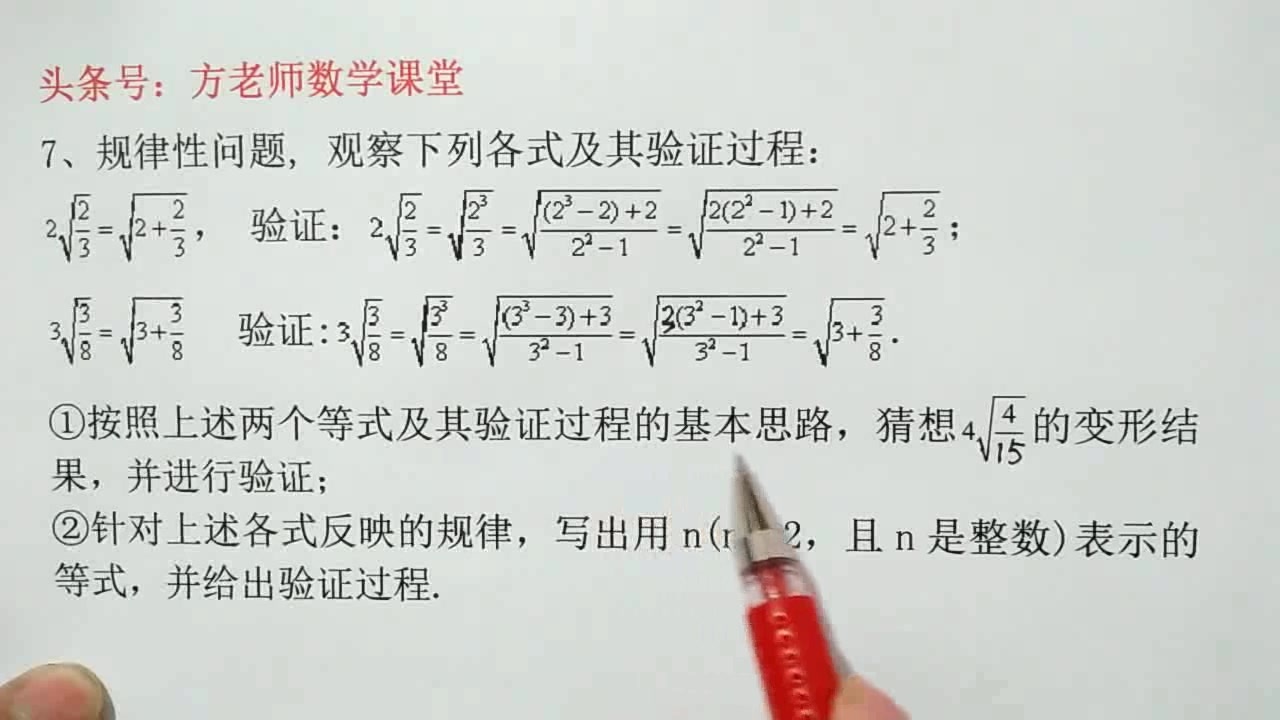 头条号：方老师数学课堂
7、规律性问题，观察下列各式及其验证过程：
2√(2/3)=√(2+2/3)， 验证：2√(2/3)=√(2³/3)=√(((2³−2)+2)/(2²−1))=√((2(2²−1)+2)/(2²−1))=√(2+2/3)；
3√(3/8)=√(3+3/8) 验证：3√(3/8)=√(3³/8)=√(((3³−3)+3)/(3²−1))=√((3(3²−1)+3)/(3²−1))=√(3+3/8).
①按照上述两个等式及其验证过程的基本思路，猜想4√(4/15)的变形结
果，并进行验证；
②针对上述各式反映的规律，写出用 n(n 2，且 n 是整数)表示的
等式，并给出验证过程.